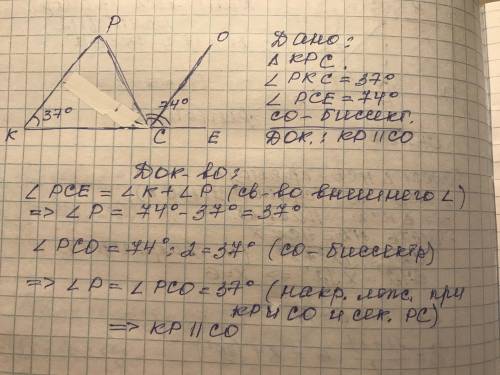 P
O
37°
74°
K
C
E
Дано:
Δ KPC.
∠PKC = 37°
∠PCE = 74°
CO - биссект.
Док.: KP || CO
Док-во:
∠PCE = ∠K + ∠P (св-во внешнего ∠)
=> ∠P = 74° - 37° = 37°
∠PCO = 74° : 2 = 37° (CO - биссектр)
=> ∠P = ∠PCO = 37° (накр. леж. при
KP и CO и сек. PC)
=> KP || CO